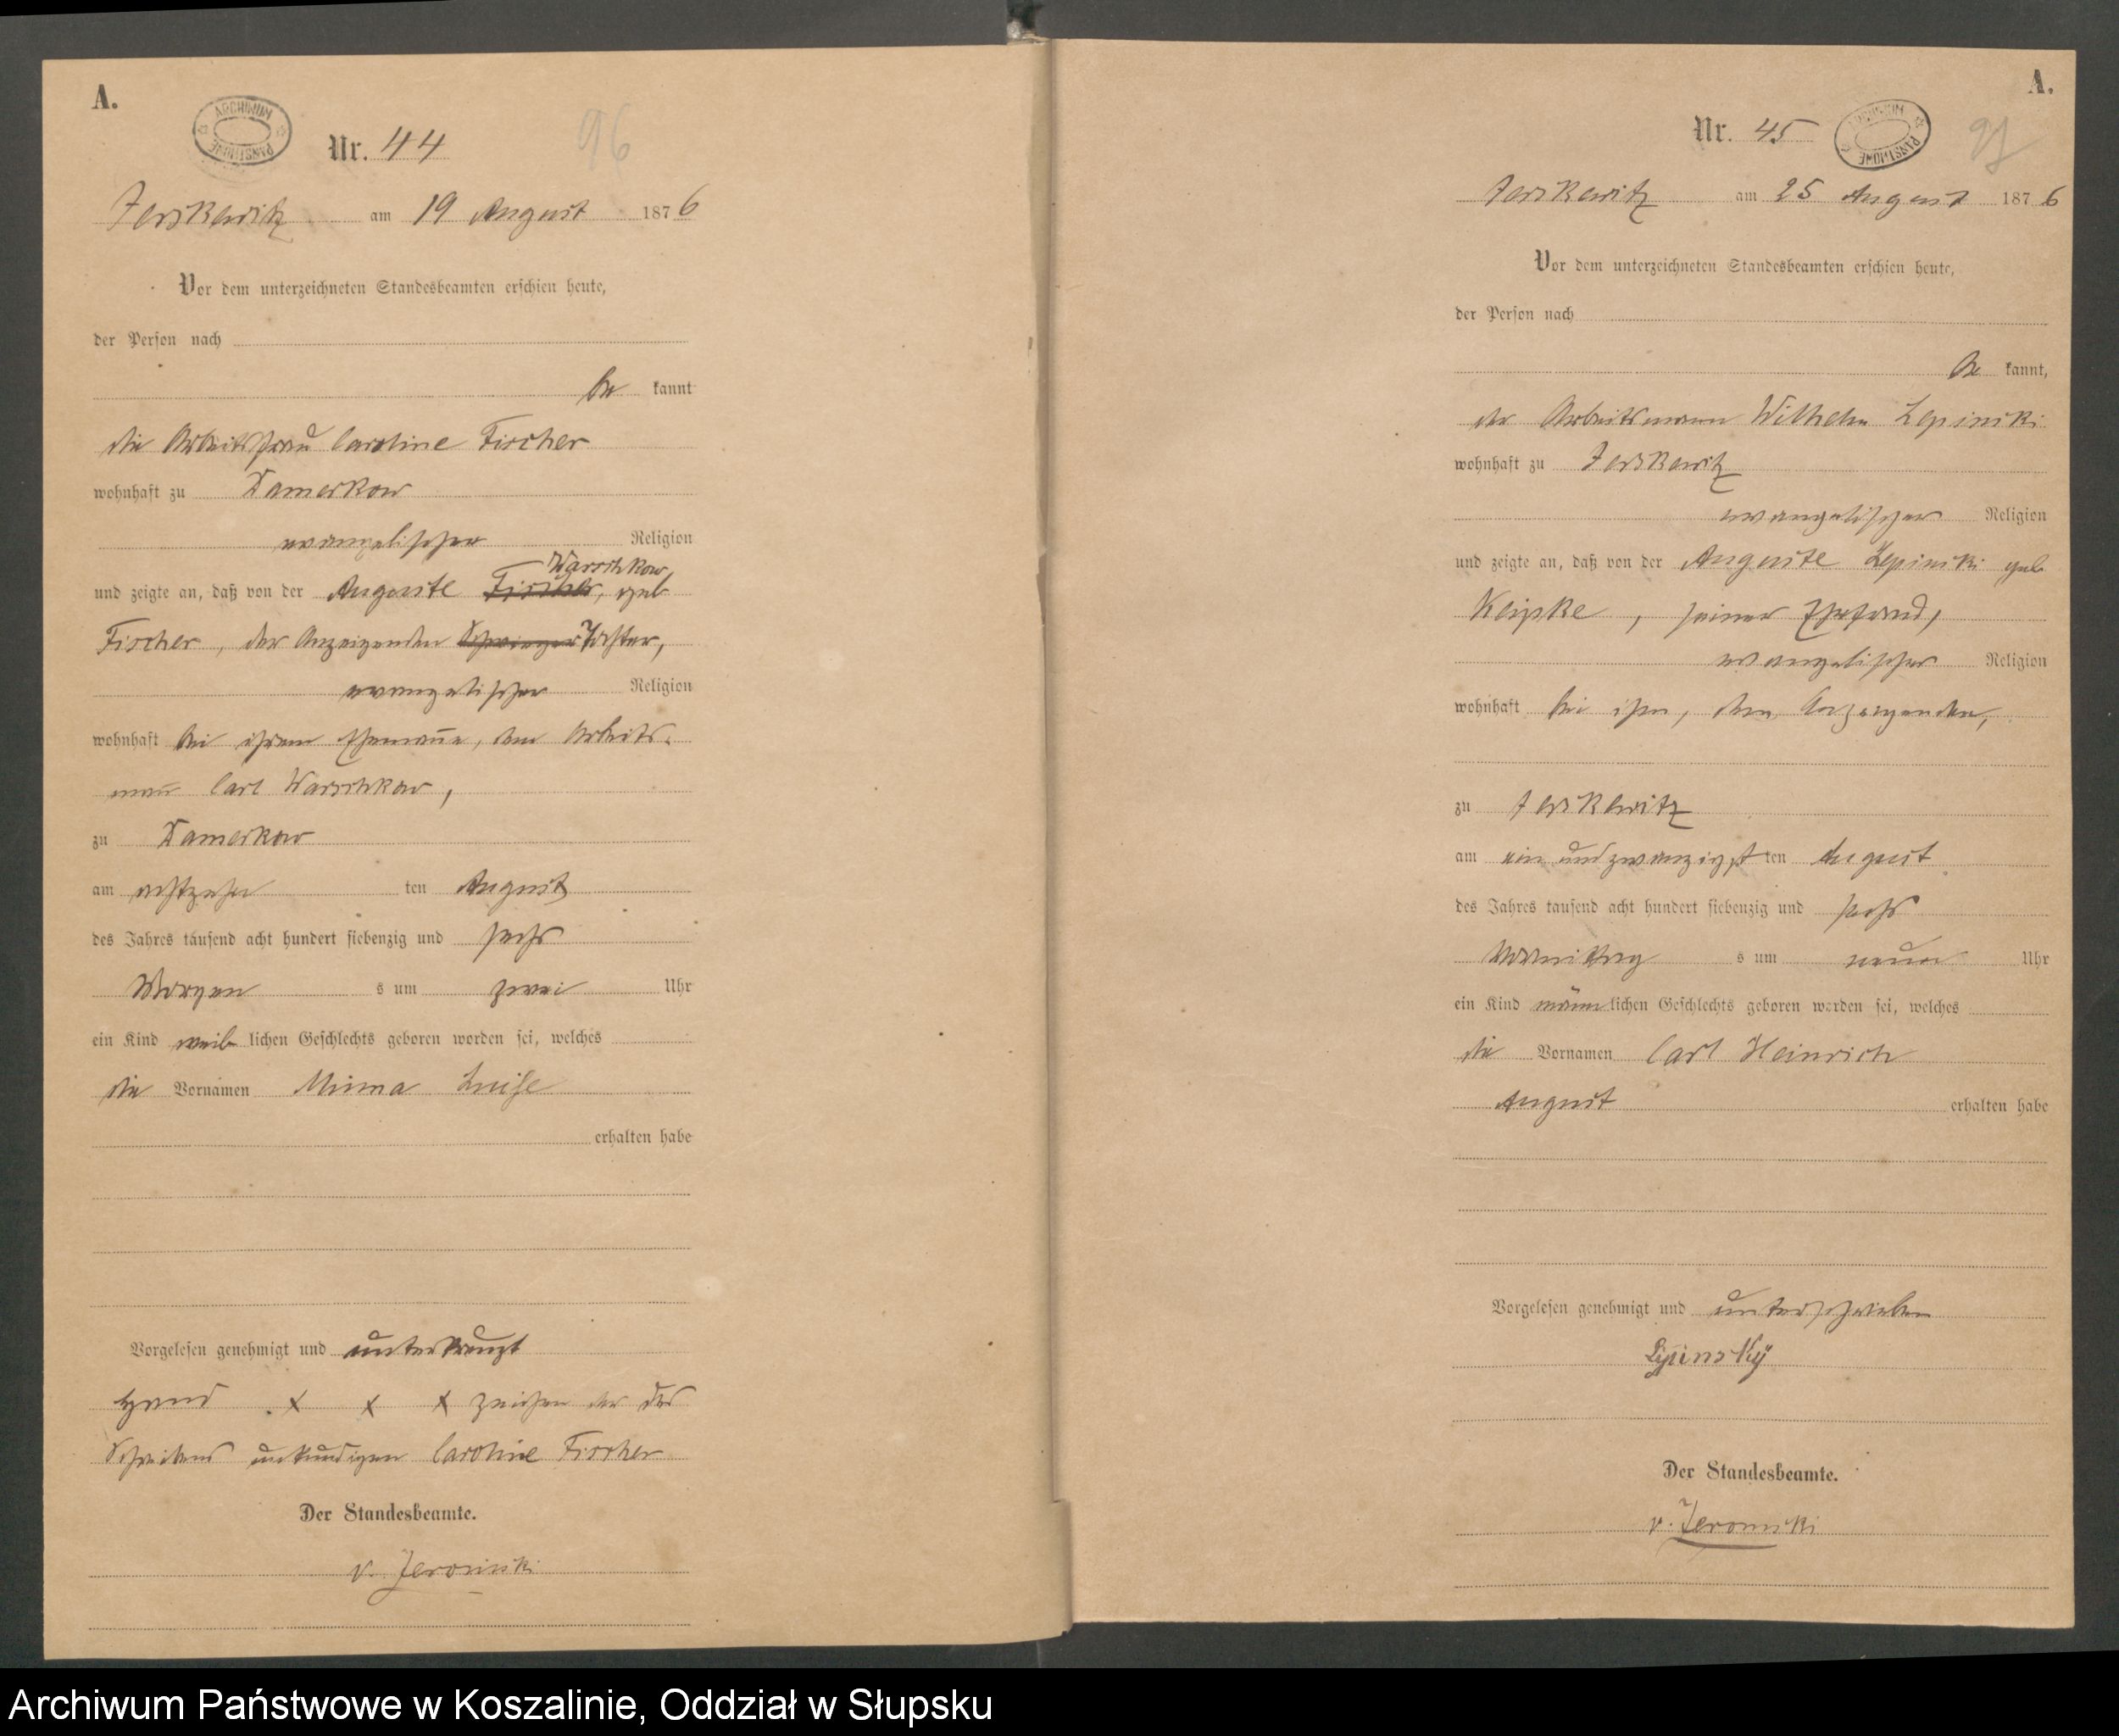 A.
ARCHIWUM PAŃSTWOWE
Nr. 44
96
Jerskewitz am 19 August 1876
Vor dem unterzeichneten Standesbeamten erschien heute,
der Person nach
be kannt
die Arbeitsfrau Caroline Fischer
wohnhaft zu Damerkow
evangelischer Religion
Warschkow
und zeigte an, daß von der Auguste Fischer, geb
Fischer, der Anzeigenden Schwieger Tochter,
evangelischer Religion
wohnhaft bei ihrem Ehemanne, dem Arbeits-
mann Carl Warschkow,
zu Damerkow
am achtzehn ten August
des Jahres tausend acht hundert siebenzig und sechs
Morgen s um zwei Uhr
ein Kind weib lichen Geschlechts geboren worden sei, welches
die Vornamen Minna Luise
erhalten habe
Vorgelesen genehmigt und unterkreuzt
Hand x x x zeichen der des
Schreibens unkundigen Caroline Fischer
Der Standesbeamte.
v. Jerominski
A.
Nr. 45
ARCHIWUM PAŃSTWOWE
Jerskewitz am 25 August 1876
Vor dem unterzeichneten Standesbeamten erschien heute,
der Person nach
be kannt,
der Arbeitsmann Wilhelm Lepinski
wohnhaft zu Jerskewitz
evangelischer Religion
und zeigte an, daß von der Auguste Lepinski geb
Keipke, seiner Ehefrau,
evangelischer Religion
wohnhaft bei ihm, dem Anzeigenden,
zu Jerskewitz
am ein und zwanzigst ten August
des Jahres tausend acht hundert siebenzig und sechs
Vormittag s um neun Uhr
ein Kind männ lichen Geschlechts geboren worden sei, welches
die Vornamen Carl Heinrich
August erhalten habe
Vorgelesen genehmigt und unterschrieben
Lipinsky
Der Standesbeamte.
v. Jerominski
Archiwum Państwowe w Koszalinie, Oddział w Słupsku